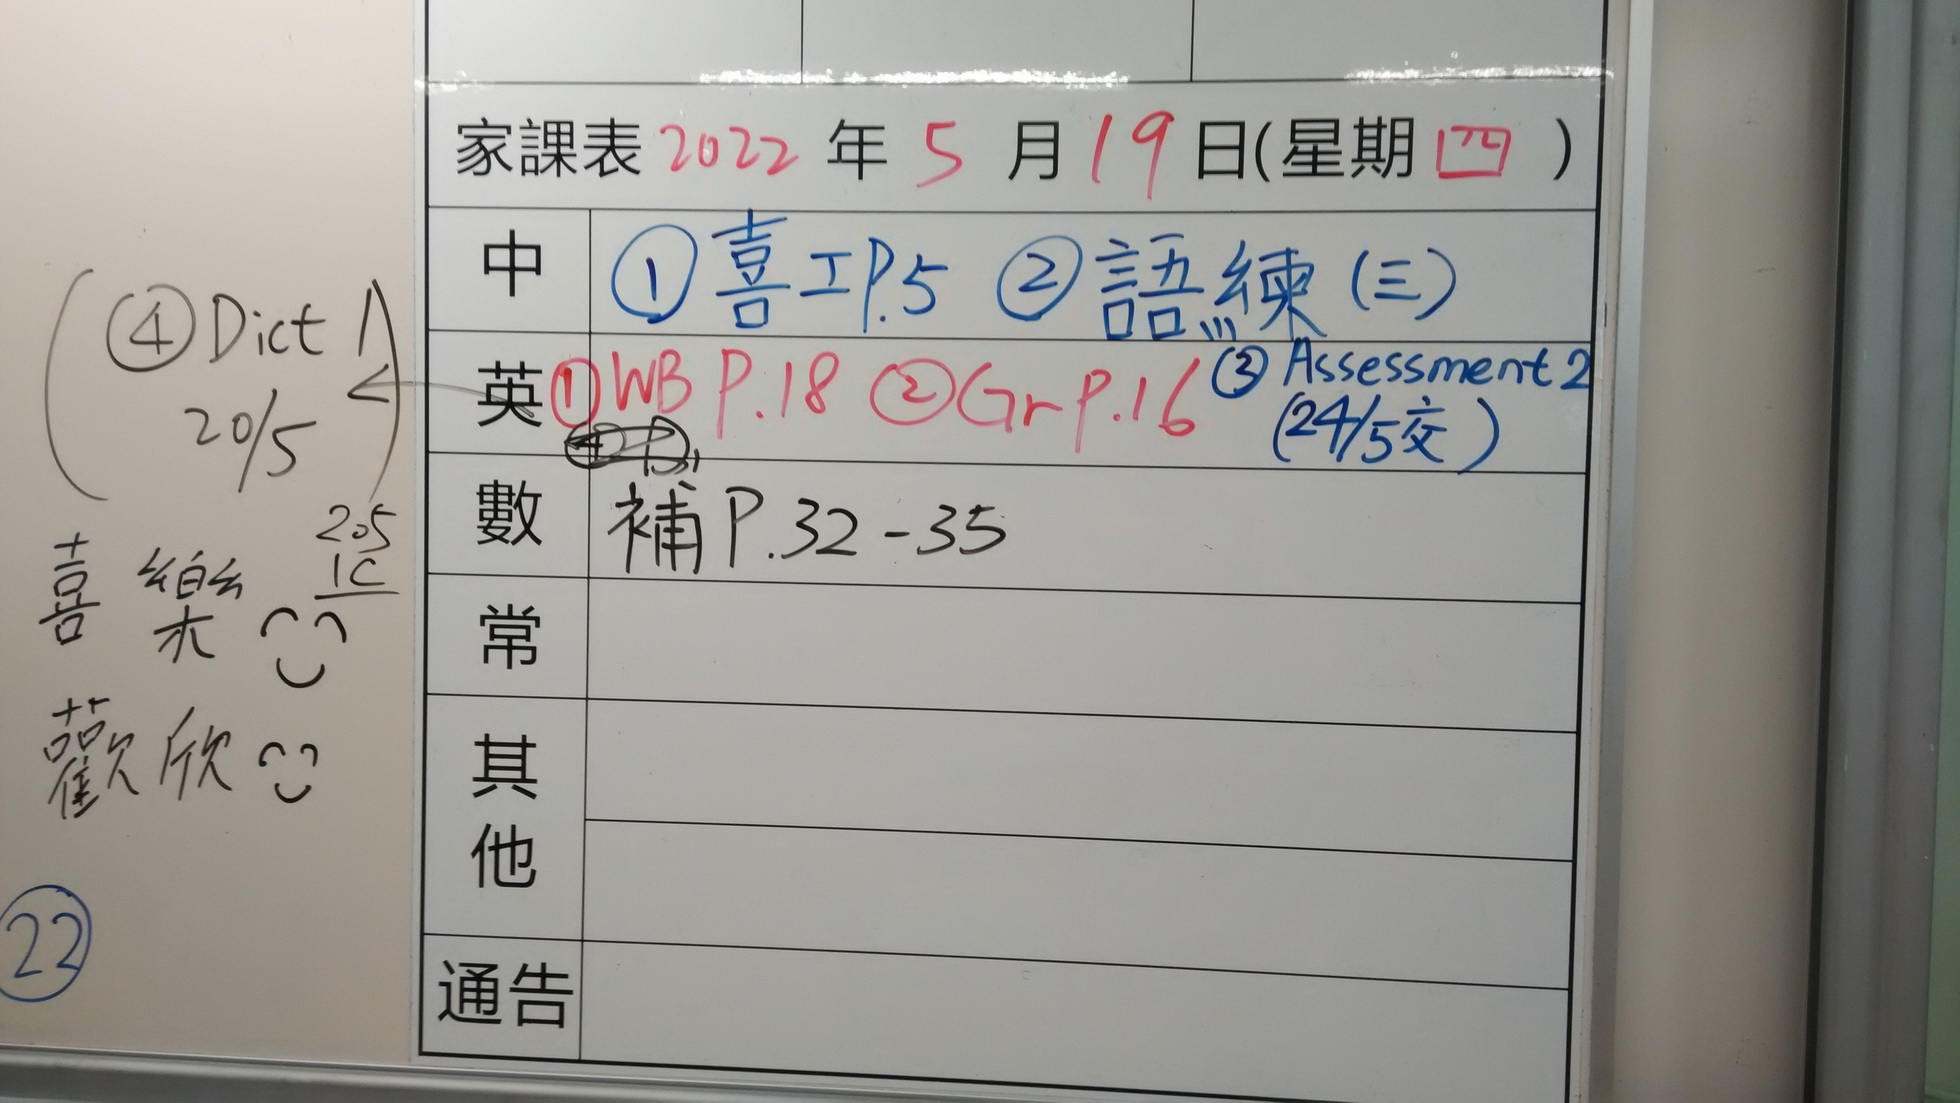 家課表 2022 年 5 月 19 日(星期四)
中 ① 喜工P.5 ② 語練(三)
英 ① WB P.18 ② Gr P.16 ③ Assessment 2
(24/5交)
數 補 P.32-35
常
其他
通告
(④ Dict 1
20/5)
205
1C
喜樂
歡欣
22